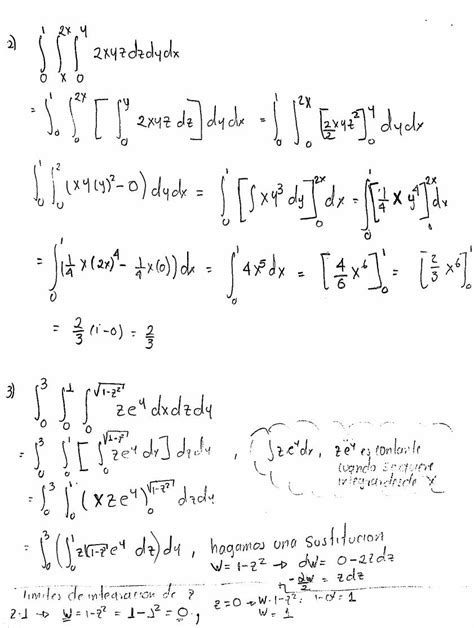 2) ∫₀¹ ∫ₓ²ˣ ∫₀ʸ 2xyz dz dy dx
= ∫₀¹ ∫₀²ˣ [ ∫₀ʸ 2xyz dz ] dy dx = ∫₀¹ ∫₀²ˣ [2/2 xyz²]₀ʸ dy dx
∫₀¹ ∫₀² (xy(y)²-0) dy dx = ∫₀¹ [∫ xy³ dy]₀²ˣ dx = ∫₀¹ [1/4 x y⁴]²ˣ dx
= ∫₀¹ (1/4 x(2x)⁴ - 1/4 x(0)) dx = ∫₀¹ 4x⁵ dx = [4/6 x⁶]₀¹ = [2/3 x⁶]₀¹
= 2/3 (1-0) = 2/3
3) ∫₀³ ∫₀¹ ∫₀^√(1-z²) z eʸ dx dz dy
= ∫₀³ ∫₀¹ [ ∫₀^√(1-z²) z eʸ dx ] dz dy , (∫ z eʸ dx, z eʸ es contante
cuando se quiere
integrar desde x
= ∫₀³ ∫₀¹ (x z eʸ)₀^√(1-z²) dz dy
= ∫₀³ (∫₀¹ z√(1-z²) eʸ dz) dy , hagamos una sustitucion
w = 1-z² → dw = 0-2z dz
-dw/2 = z dz
limites de integracion de z
z=1 → w = 1-z² = 1-1² = 0 , z=0 → w=1-z² = 1-0² = 1
w = 1